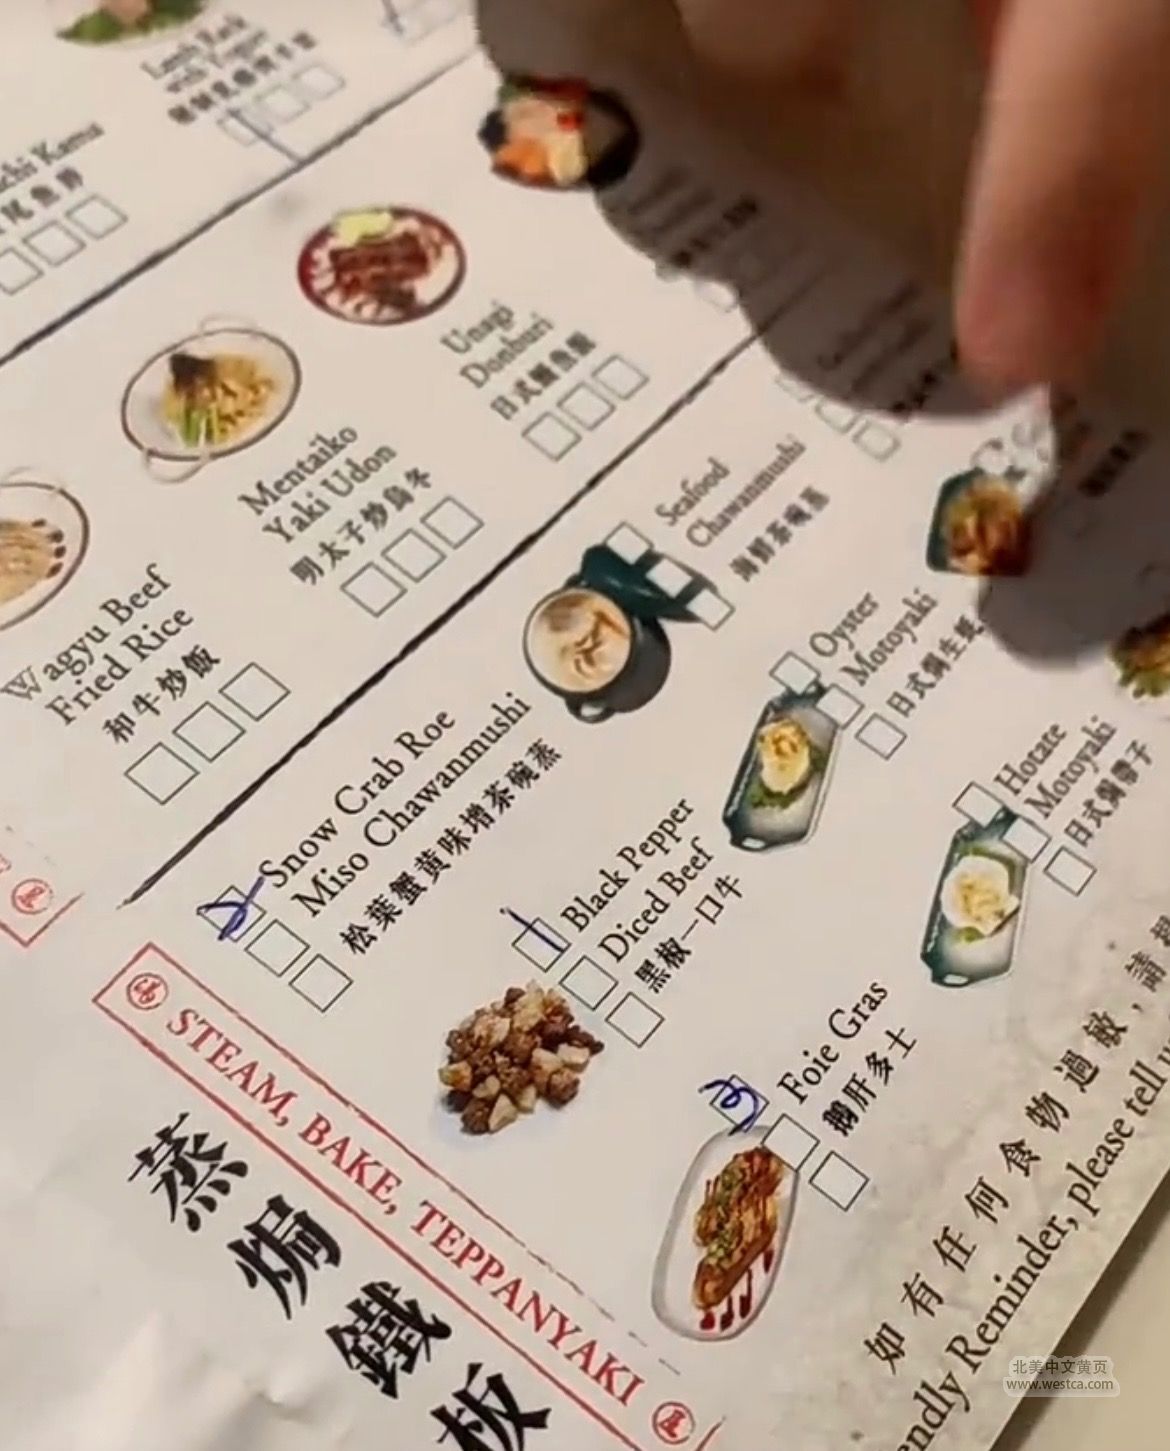 with Yogurt
Kama
Unagi
Donburi
日式鰻魚飯
Mentaiko
Yaki Udon
明太子炒烏冬
Wagyu Beef
Fried Rice
和牛炒飯
Seafood
Chawanmushi
海鮮茶碗蒸
Oyster
Motoyaki
日式焗生蠔
Hotate
Motoyaki
日式焗帶子
Snow Crab Roe
Miso Chawanmushi
松葉蟹黃味增茶碗蒸
Black Pepper
Diced Beef
黑椒一口牛
Foie Gras
鵝肝多士
STEAM, BAKE, TEPPANYAKI
蒸焗鐵板
如有任何食物過敏，請
Reminder, please tell
北美中文黄页
www.westca.com